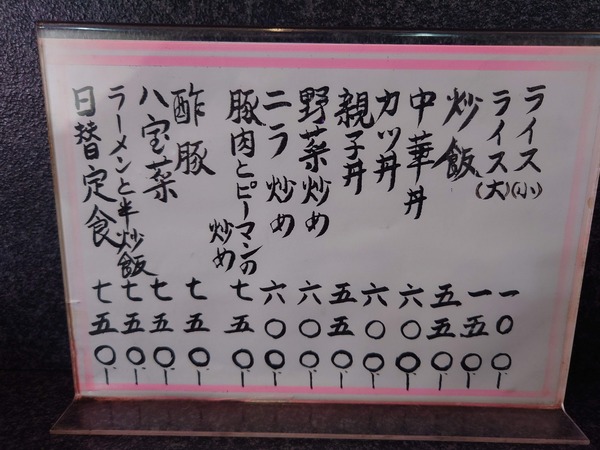 ライス(小) 一〇〇
ライス(大) 一五〇
炒飯 五五〇
中華丼 六〇〇
カツ丼 六〇〇
親子丼 五五〇
野菜炒め 六〇〇
ニラ炒め 六〇〇
豚肉とピーマンの炒め 七五〇
酢豚 七五〇
八宝菜 七五〇
ラーメンと半炒飯 七五〇
日替定食 七五〇